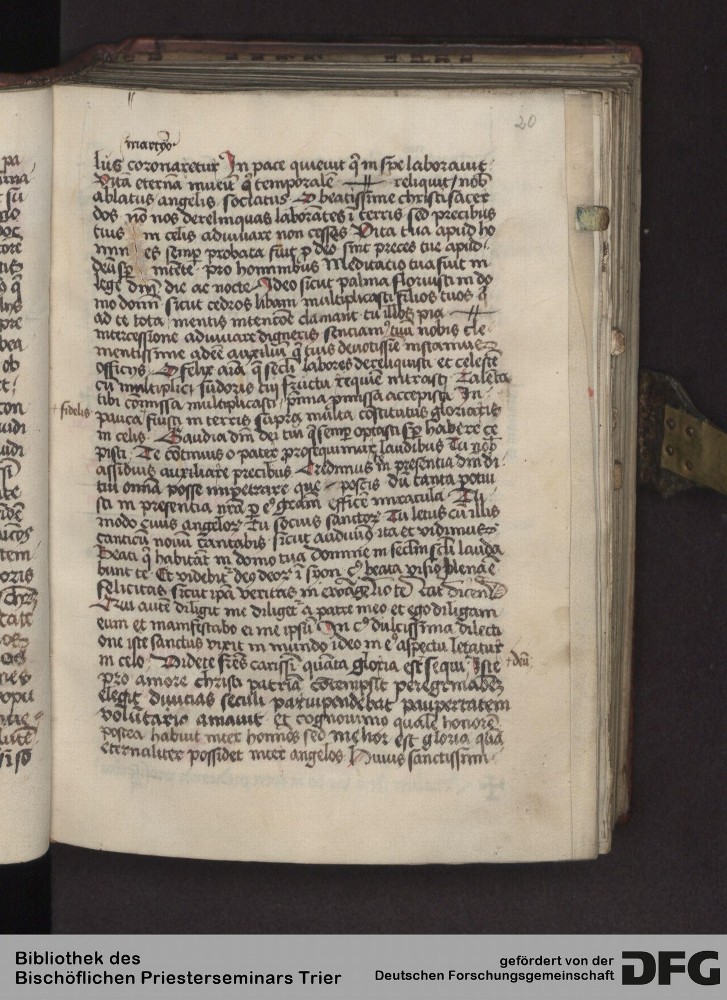 20
martyrio
lius coronaretur In pace quieuit qͥ in spe laborauit
Vita eterna inuenit qͥ temporale reliquit / nob
ablatus angelis sociatus O beatissime christi sacer
dos nō nos derelinquas laborātes ī terris sed precibus
tuis in celis adiuuare non cesses Vita tua apud ho
min es semꝑ probata fuit ꝓ deo sint preces tue apud
deū sꝑ intēte pro hominibus Meditacio tua fuit in
lege dm̄ die ac nocte Ideo sicut palma floruisti in do
mo domī sicut cedros libani multiplicasti filios tuos qͥ
ad te tota mentis intencōe clamant tu illos pia
intercessione adiuuare digneris senciamꝰ tuū nobis cle
mentissime adeē auxiliū qͥ tuis deuotissīe instamus
officiis O felix aīa q̄ secli labores dereliquisti et celestē
cū multiplici sudoris tui fructu requiē intrasti Talenta
fidelis
tibi cōmissa multiplicasti p̄mia ꝓmissa accepisti In
pauca fuisti in terris supra multa cōstitutus gloriaris
in celis Gaudia dm̄ dei tui q̄ semꝑ optasti sꝑ habere ce
pisti Te cōtinuis o pater prosequimur laudibus Tu nob
assiduis auxiliare precibus Credimus in presentia dm̄ di
tui om̄ia posse impetrare que poscis dū tanta potui
sti in presentia nr̄a ꝑ eꝰ gr̄am efficē miracula Tu
modo ciuis angelor Tu socius sanctor Tu letus cū illis
canticū nouū cantabis sicut audiuim ita et vidimus
Beati qͥ habitāt in domo tua domine in seclm̄ scli lauda
bunt te Et videbit deꝰ deor ī syon cꝰ beata visio plena ē
felicitas sicut ip̄a veritas in ewāgelio te tat dicens
Qui autē diligit me diliget a patre meo et ego diligam
eum et manifestabo ei me ipsū In cꝰ dulcissima dilecti
one iste sanctus vixit in mundo ideo in eꝰ aspectu letatur
in celo Videte fr̄es carissi quāta gloria est sequi Iste
deū
pro amore christi patriā cōtempsit peregrinādes
elegit diuicias seculi paruipendebat paupertatem
voluntario amauit et cognouimo quale honorē
postea habuit inter homines sed melior est gloria quā
eternaliter possidet inter angelos Huius sanctissim
Bibliothek des
Bischöflichen Priesterseminars Trier
gefördert von der
Deutschen Forschungsgemeinschaft
DFG